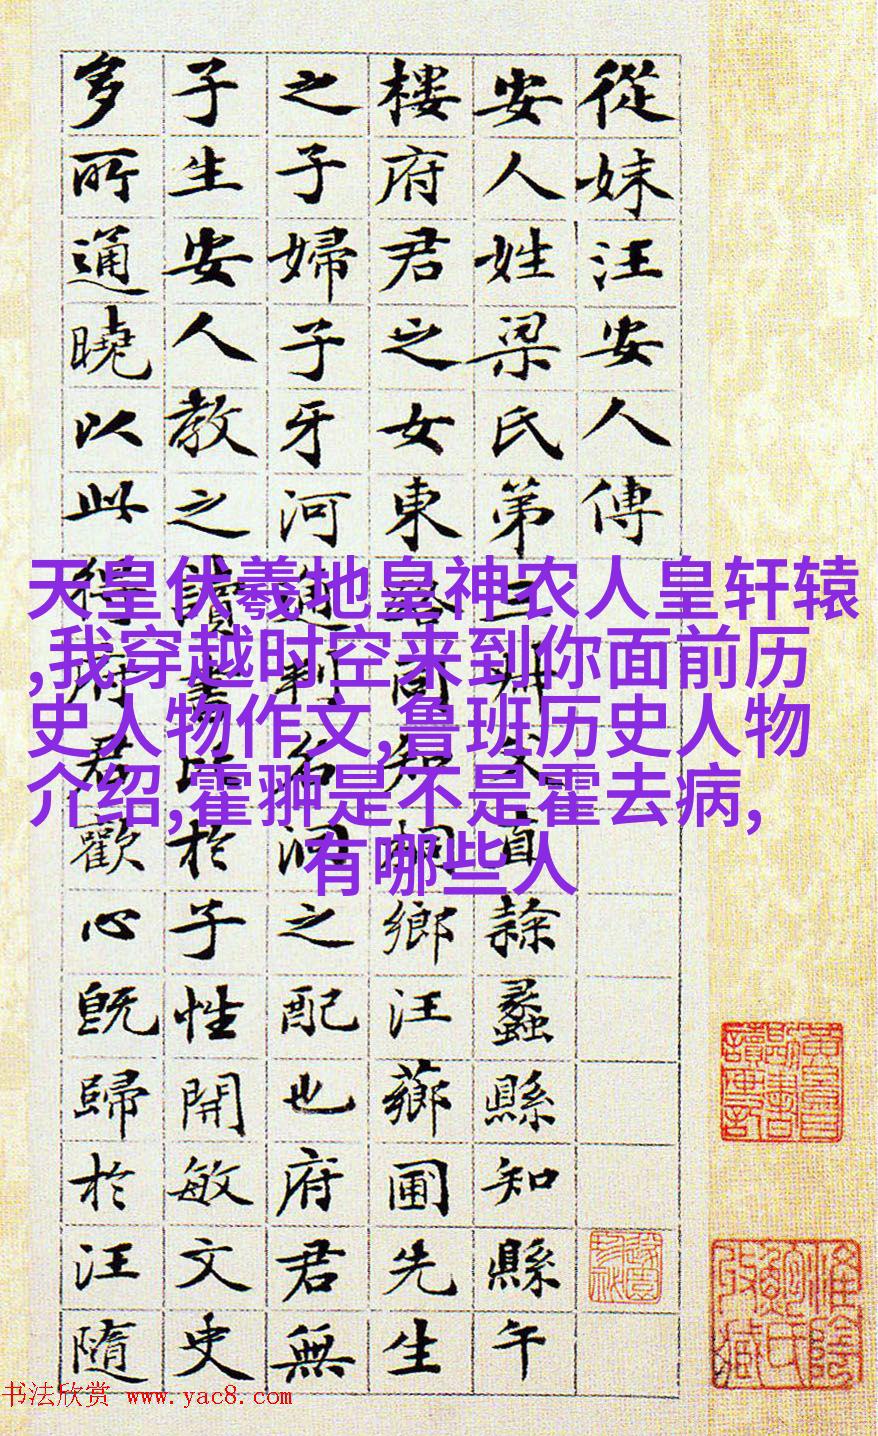 從妹汪安人傳
安人姓梁氏第三父直隸蠡縣知縣午
樓府君之女東路同知桐鄉汪薌圃先生
之子婦子牙河通判名洞之配也府君無
子生安人教之讀書比於子性開敏文史
多所通曉以此得府君歡心既歸於汪隨
天皇伏羲地皇神农人皇轩辕
,我穿越时空来到你面前历
史人物作文,鲁班历史人物
介绍,霍翀是不是霍去病,
有哪些人
书法欣赏 www.yac8.com